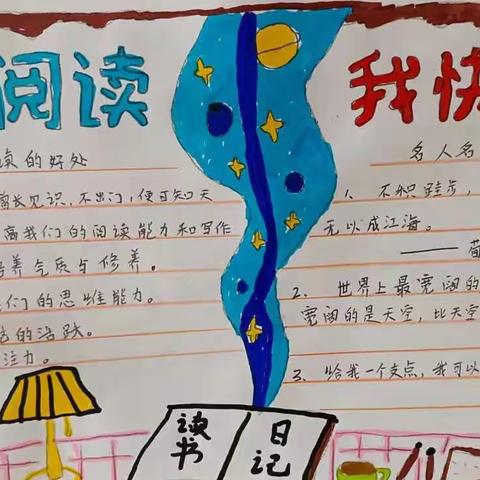 阅读
我快
读的好处
增长见识,不出门,便可知天
高我们的阅读能力和写作
培养气质与修养。
我们的思维能力。
的活跃。
注力。
名人名
1. 不积跬步,
无以成江海。
——荀
2. 世界上最宽阔的
宽阔的是天空,比天空
3. 给我一个支点,我可以
读书
日记